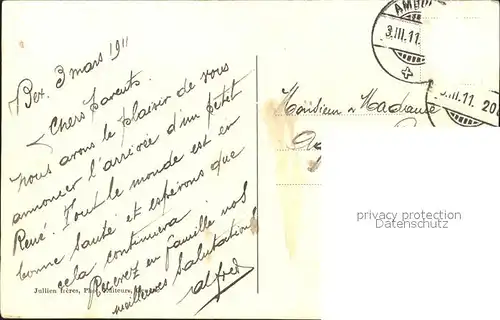 Bex. 3 mars 1911
Chers parents.
nous avons le plaisir de vous
annoncer l'arrivée d'un petit
René. Tout le monde est en
bonne santé et espérons que
cela continuera.
Recevez en famille nos
meilleures salutations
Alfred
Jullien frères, Phot. Editeurs,
AMBU
3.III.11.
III.11. 20
Monsieur & Madame
privacy protection
Datenschutz